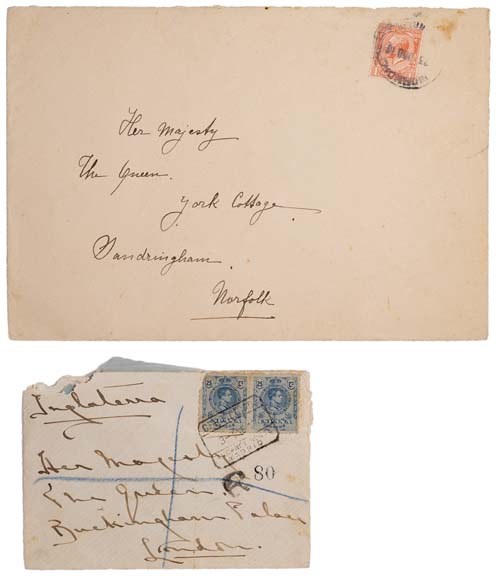 Her Majesty
The Queen.
York Cottage
Sandringham
Norfolk
Inglaterra
Her Majesty
The Queen
Buckingham Palace
London.
R 80